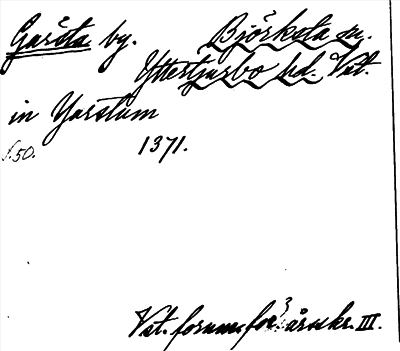 Garsta by. Björksta sn.
Yttertjurbo hd. Vst.
in Garstum
s. 50. 1371.
Vst. fornm. för:s årsskr. III.